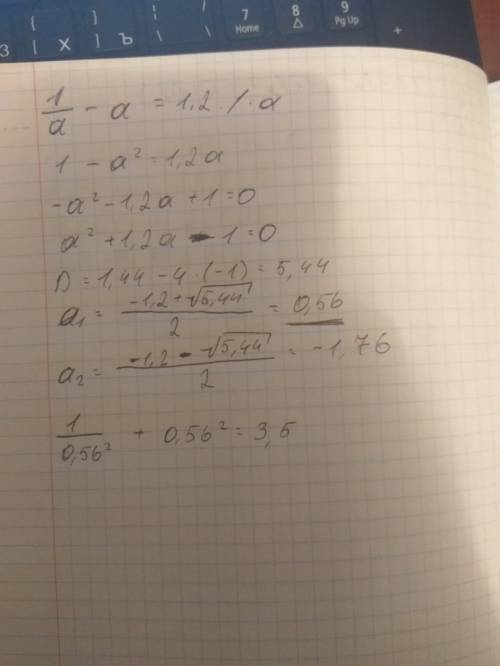 { } | 7 8 9
[ ] \ Home △ Pg Up
З Х Ъ \ +
1/a - a = 1,2 / · a
1 - a² = 1,2a
-a² - 1,2a + 1 = 0
a² + 1,2a - 1 = 0
D = 1,44 - 4 · (-1) = 5,44
a₁ = (-1,2 + √5,44) / 2 = 0,56
a₂ = (-1,2 - √5,44) / 2 = -1,76
1/0,56² + 0,56² = 3,5